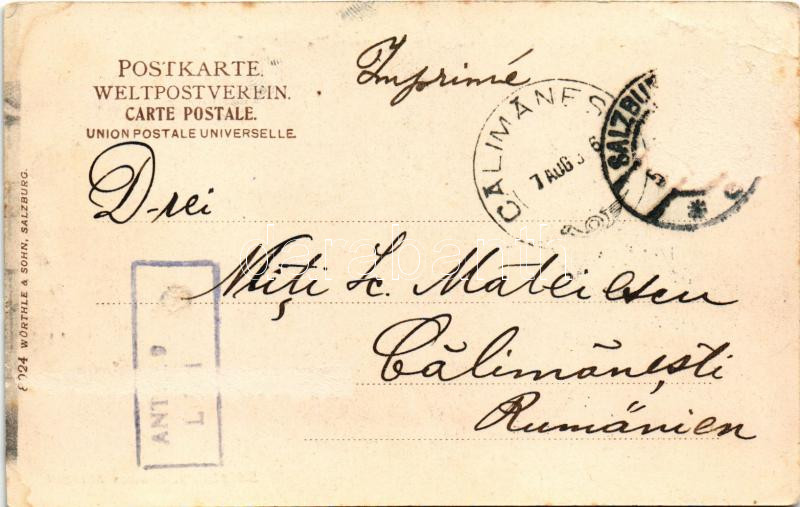 POSTKARTE.
WELTPOSTVEREIN.
CARTE POSTALE.
UNION POSTALE UNIVERSELLE.
Imprimé
CĂLIMĂNES
7 AUG
SALZBUR
D-rei
Miți Sc. Mateiescu
Călimănești
Rumänien
WÜRTHLE & SOHN, SALZBURG.
ANT
L
darabanth